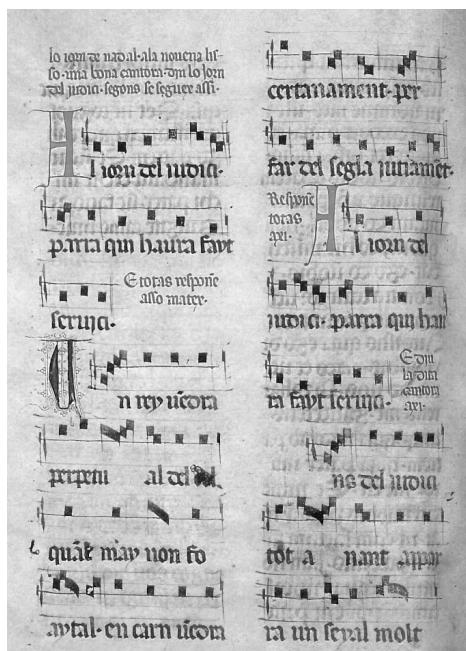 lo iorn de nadal· ala nouena lis-
so· una bona cantora· diu lo iorn
del iudici· segons se seguex assi·
Al iorn del iudici·
parra qui haura fayt
seruici·
E totas responē
asso matex·
Un rey uēdra
perpetu al del
qual may non fo
aytal· en carn uēdra
certanament· per
far del segla iutiamēt·
Responē
totas
axi·
Al iorn del
iudici· parra qui hau
ra fayt seruici·
E diu
la dita
cantora
axi·
ns del iudici
tot a nant appar
ra un senal molt